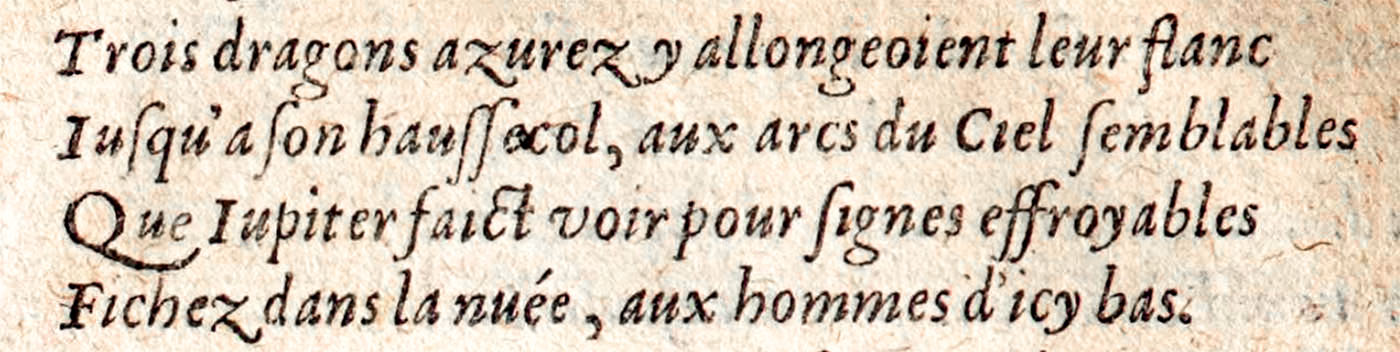 Trois dragons azurez y allongeoient leur flanc
Iuſqu'a ſon hauſſecol, aux arcs du Ciel ſemblables
Que Iupiter faict voir pour ſignes effroyables
Fichez dans la nuée, aux hommes d'icy bas.